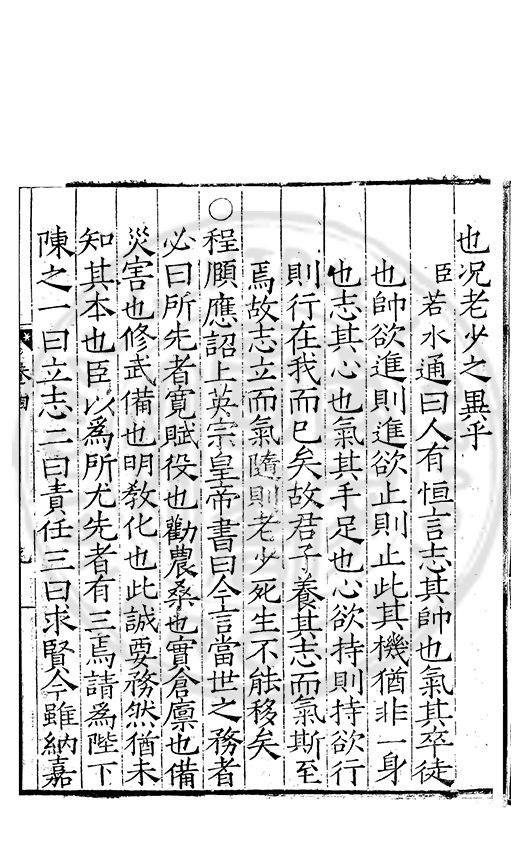 也况老少之異乎
臣若水通曰人有恒言志其帥也氣其卒徒
也帥欲進則進欲止則止此其機猶非一身
也志其心也氣其手足也心欲持則持欲行
則行在我而已矣故君子養其志而氣斯至
焉故志立而氣隨則老少死生不能移矣
○程頤應詔上英宗皇帝書曰今言當世之務者
必曰所先者寛賦役也勸農桑也實倉廩也備
災害也修武備也明敎化也此誠要務然猶未
知其本也臣以爲所尤先者有三焉請爲陛下
陳之一曰立志二曰責任三曰求賢今雖納嘉